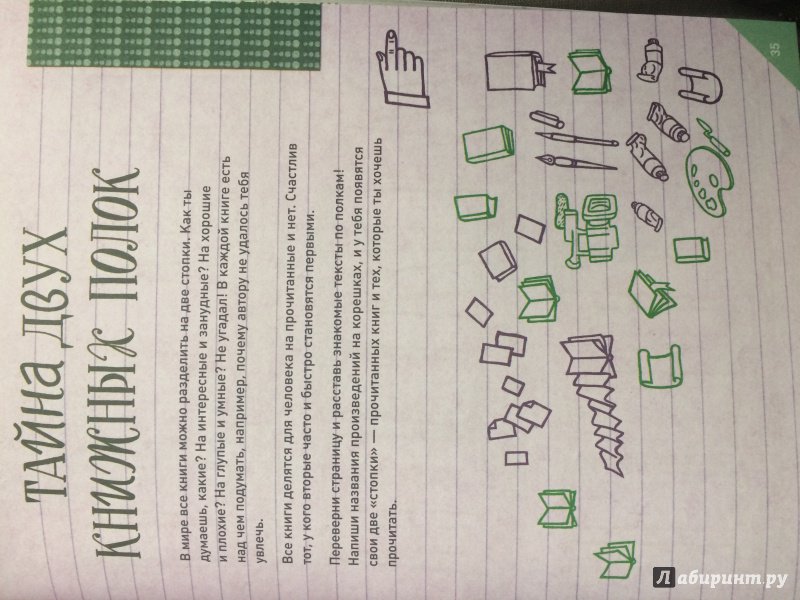 ТАЙНА ДВУХ
КНИЖНЫХ ПОЛОК
В мире все книги можно разделить на две стопки. Как ты
думаешь, какие? На интересные и занудные? На хорошие
и плохие? На глупые и умные? Не угадал! В каждой книге есть
над чем подумать, например, почему автору не удалось тебя
увлечь.
Все книги делятся для человека на прочитанные и нет. Счастлив
тот, у кого вторые часто и быстро становятся первыми.
Переверни страницу и расставь знакомые тексты по полкам!
Напиши названия произведений на корешках, и у тебя появятся
свои две «стопки» — прочитанных книг и тех, которые ты хочешь
прочитать.
35
Лабиринт.ру